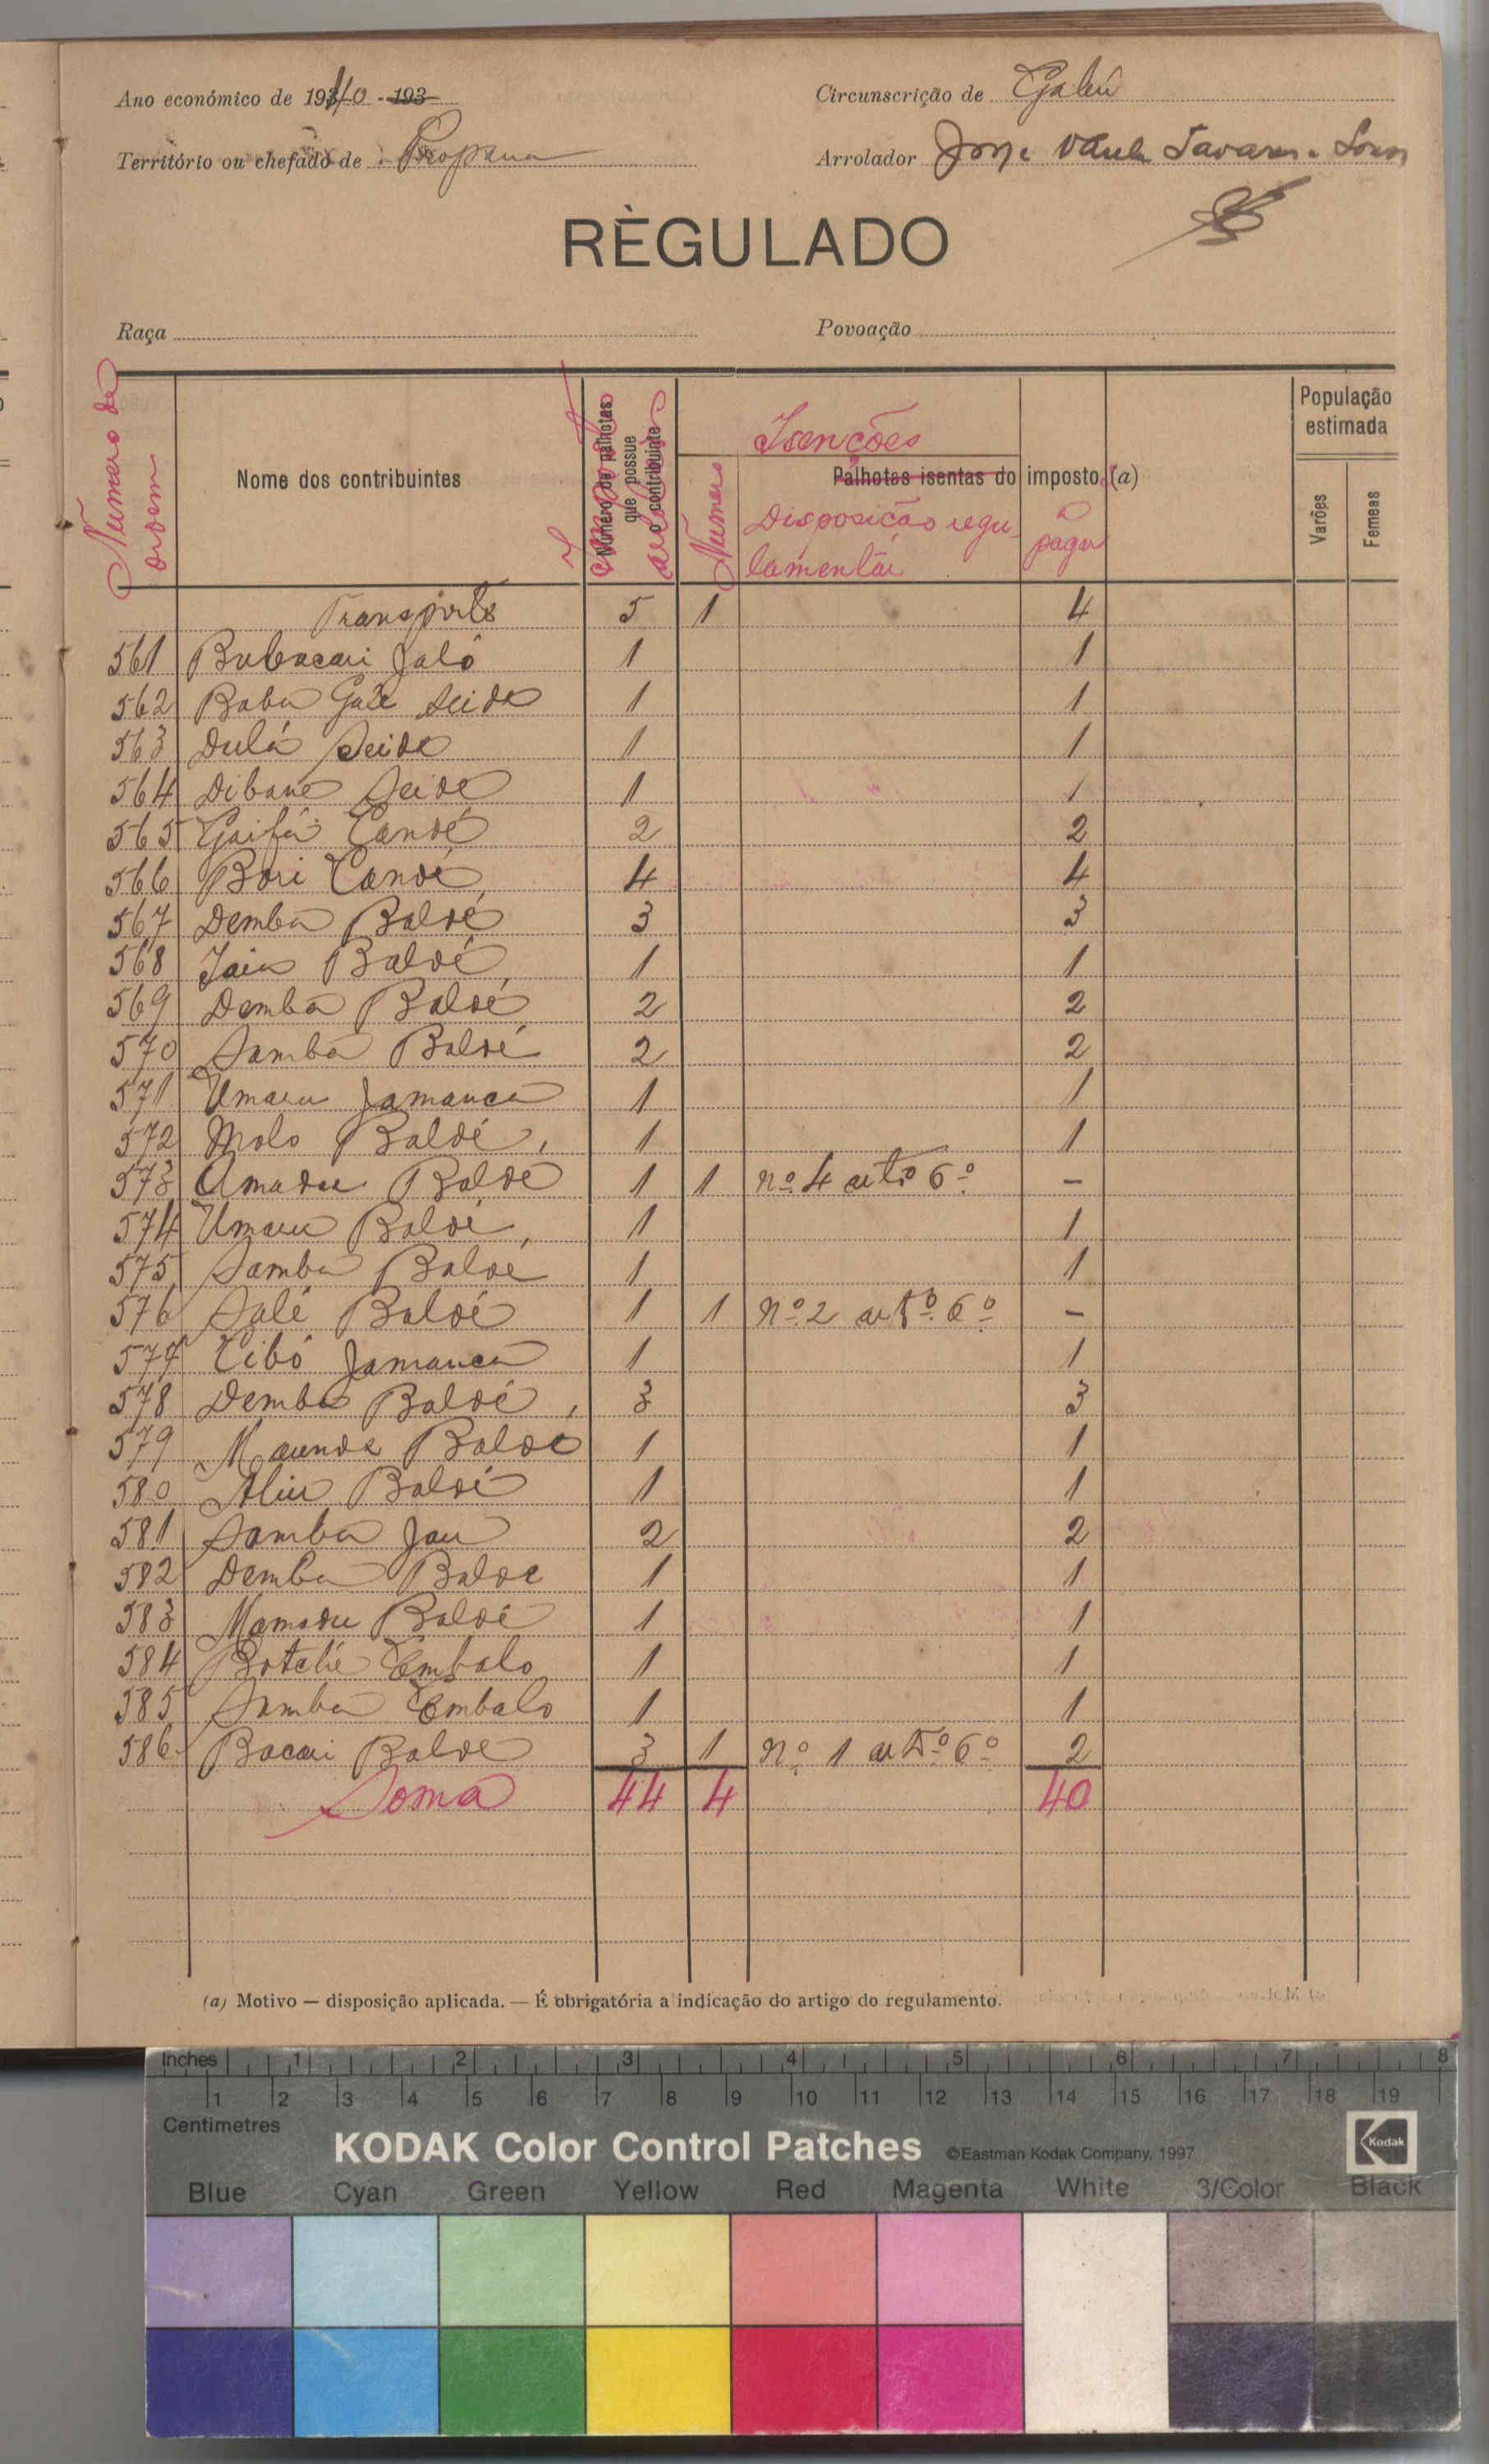 Ano económico de 1940 - 193
Circunscrição de Gabú
Território ou chefado de Propana
Arrolador Jorge Tavares
RÈGULADO
Raça
Povoação
Numero de ordem
Nome dos contribuintes
Número de palhotas que possue o contribuinte
Isenções
Palhotas isentas do imposto (a)
Numero
Disposição regulamentar
a pagar
População estimada
Varões
Femeas
Transporte 5 1 4
561 Bubacari Jaló 1 1
562 Babu Galé Seide 1 1
563 Dulá Seide 1 1
564 Dibane Seide 1 1
565 Gaifá Candé 2 2
566 Bori Candé 4 4
567 Demba Baldé 3 3
568 Baldé 1 1
569 Demba Baldé 2 2
570 Samba Baldé 2 2
571 Umaru Jamanca 1 1
572 Molo Baldé, 1 1
573 Amadu Baldé 1 1 nº 4 artº 6º -
574 Umaru Baldé, 1 1
575 Samba Baldé 1 1
576 Salé Baldé 1 1 nº 2 artº 6º -
577 Cibó Jamanca 1 1
578 Demba Baldé, 3 3
579 Maunde Baldé 1 1
580 Aliu Baldé 1 1
581 Samba Jau 2 2
582 Demba Balde 1 1
583 Mamadu Baldé 1 1
584 Botché Embalo 1 1
585 Samba Embalo 1 1
586 Bacari Balde 3 1 nº 1 artº 6º 2
Soma 44 4 40
(a) Motivo — disposição aplicada. — É obrigatória a indicação do artigo do regulamento.
Inches 1 2 3 4 5 6 7 8
1 2 3 4 5 6 7 8 9 10 11 12 13 14 15 16 17 18 19
Centimetres
KODAK Color Control Patches ©Eastman Kodak Company, 1997 Kodak
Blue Cyan Green Yellow Red Magenta White 3/Color Black